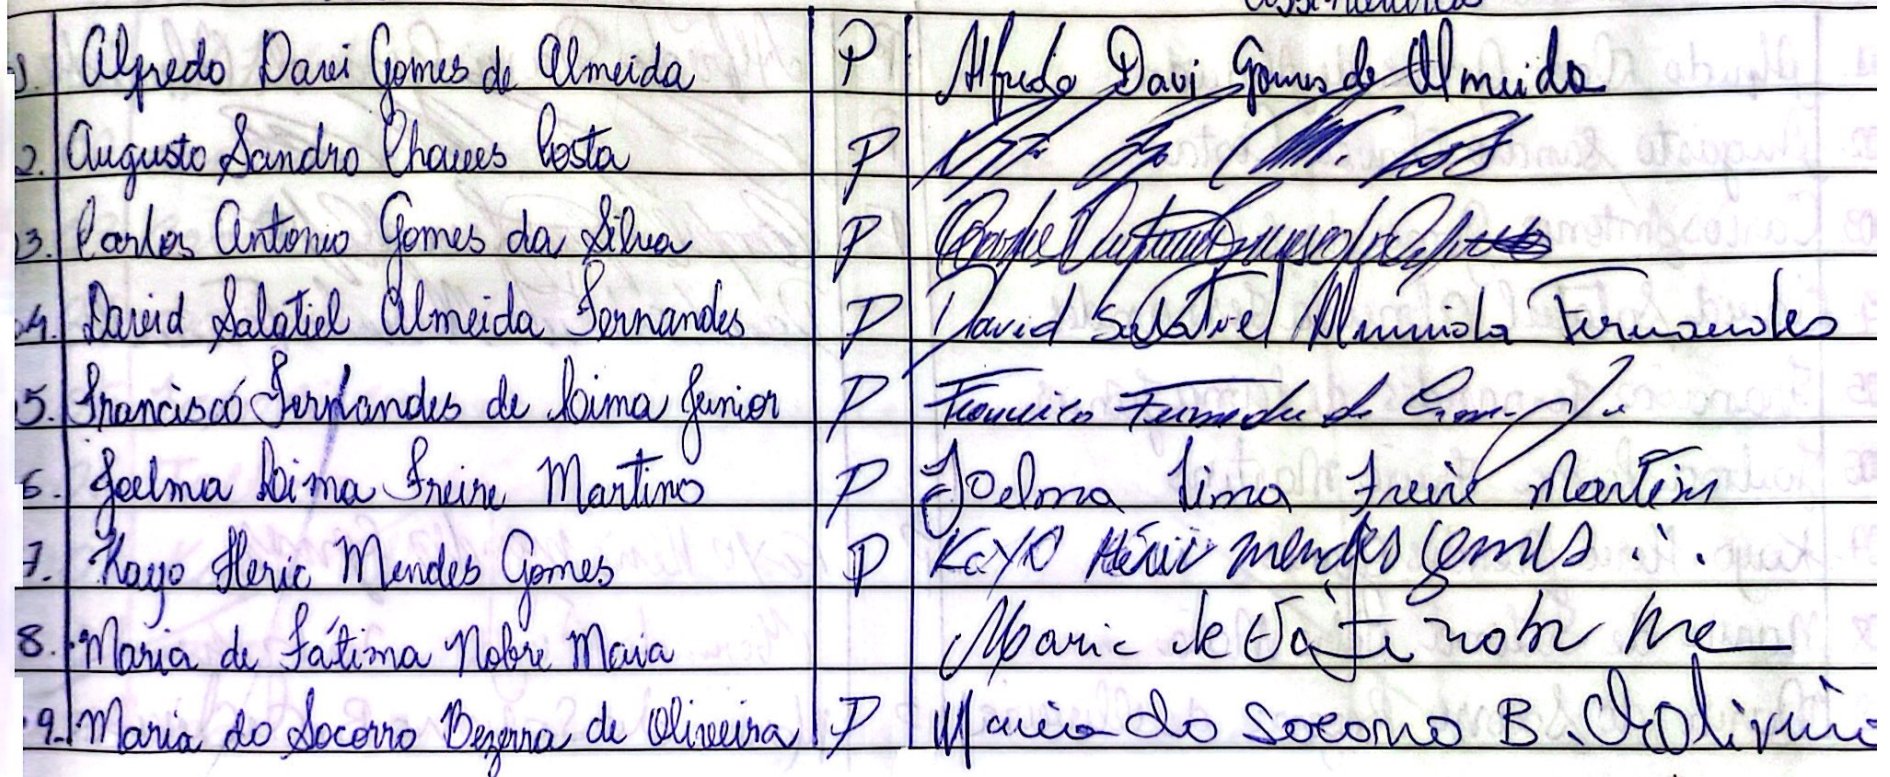 assinatura
01. Alfredo Davi Gomes de Almeida P Alfredo Davi Gomes de Almeida
02. Augusto Sandro Chaves Costa P
03. Carlos Antonio Gomes da Silva P
04. David Salatiel Almeida Fernandes P David Salatiel Almeida Fernandes
05. Francisco Fernandes de Lima Junior P Francisco Fernandes de Lima Jr
6. Joelma Lima Freire Martins P Joelma Lima Freire Martins
7. Kayo Heric Mendes Gomes P Kayo Héric mendes Gomes
8. Maria de Fátima Nobre Maia Maria de Fátima nobre
9. Maria do Socorro Bezerra de Oliveira P Maria do Socorro B. de Oliveira